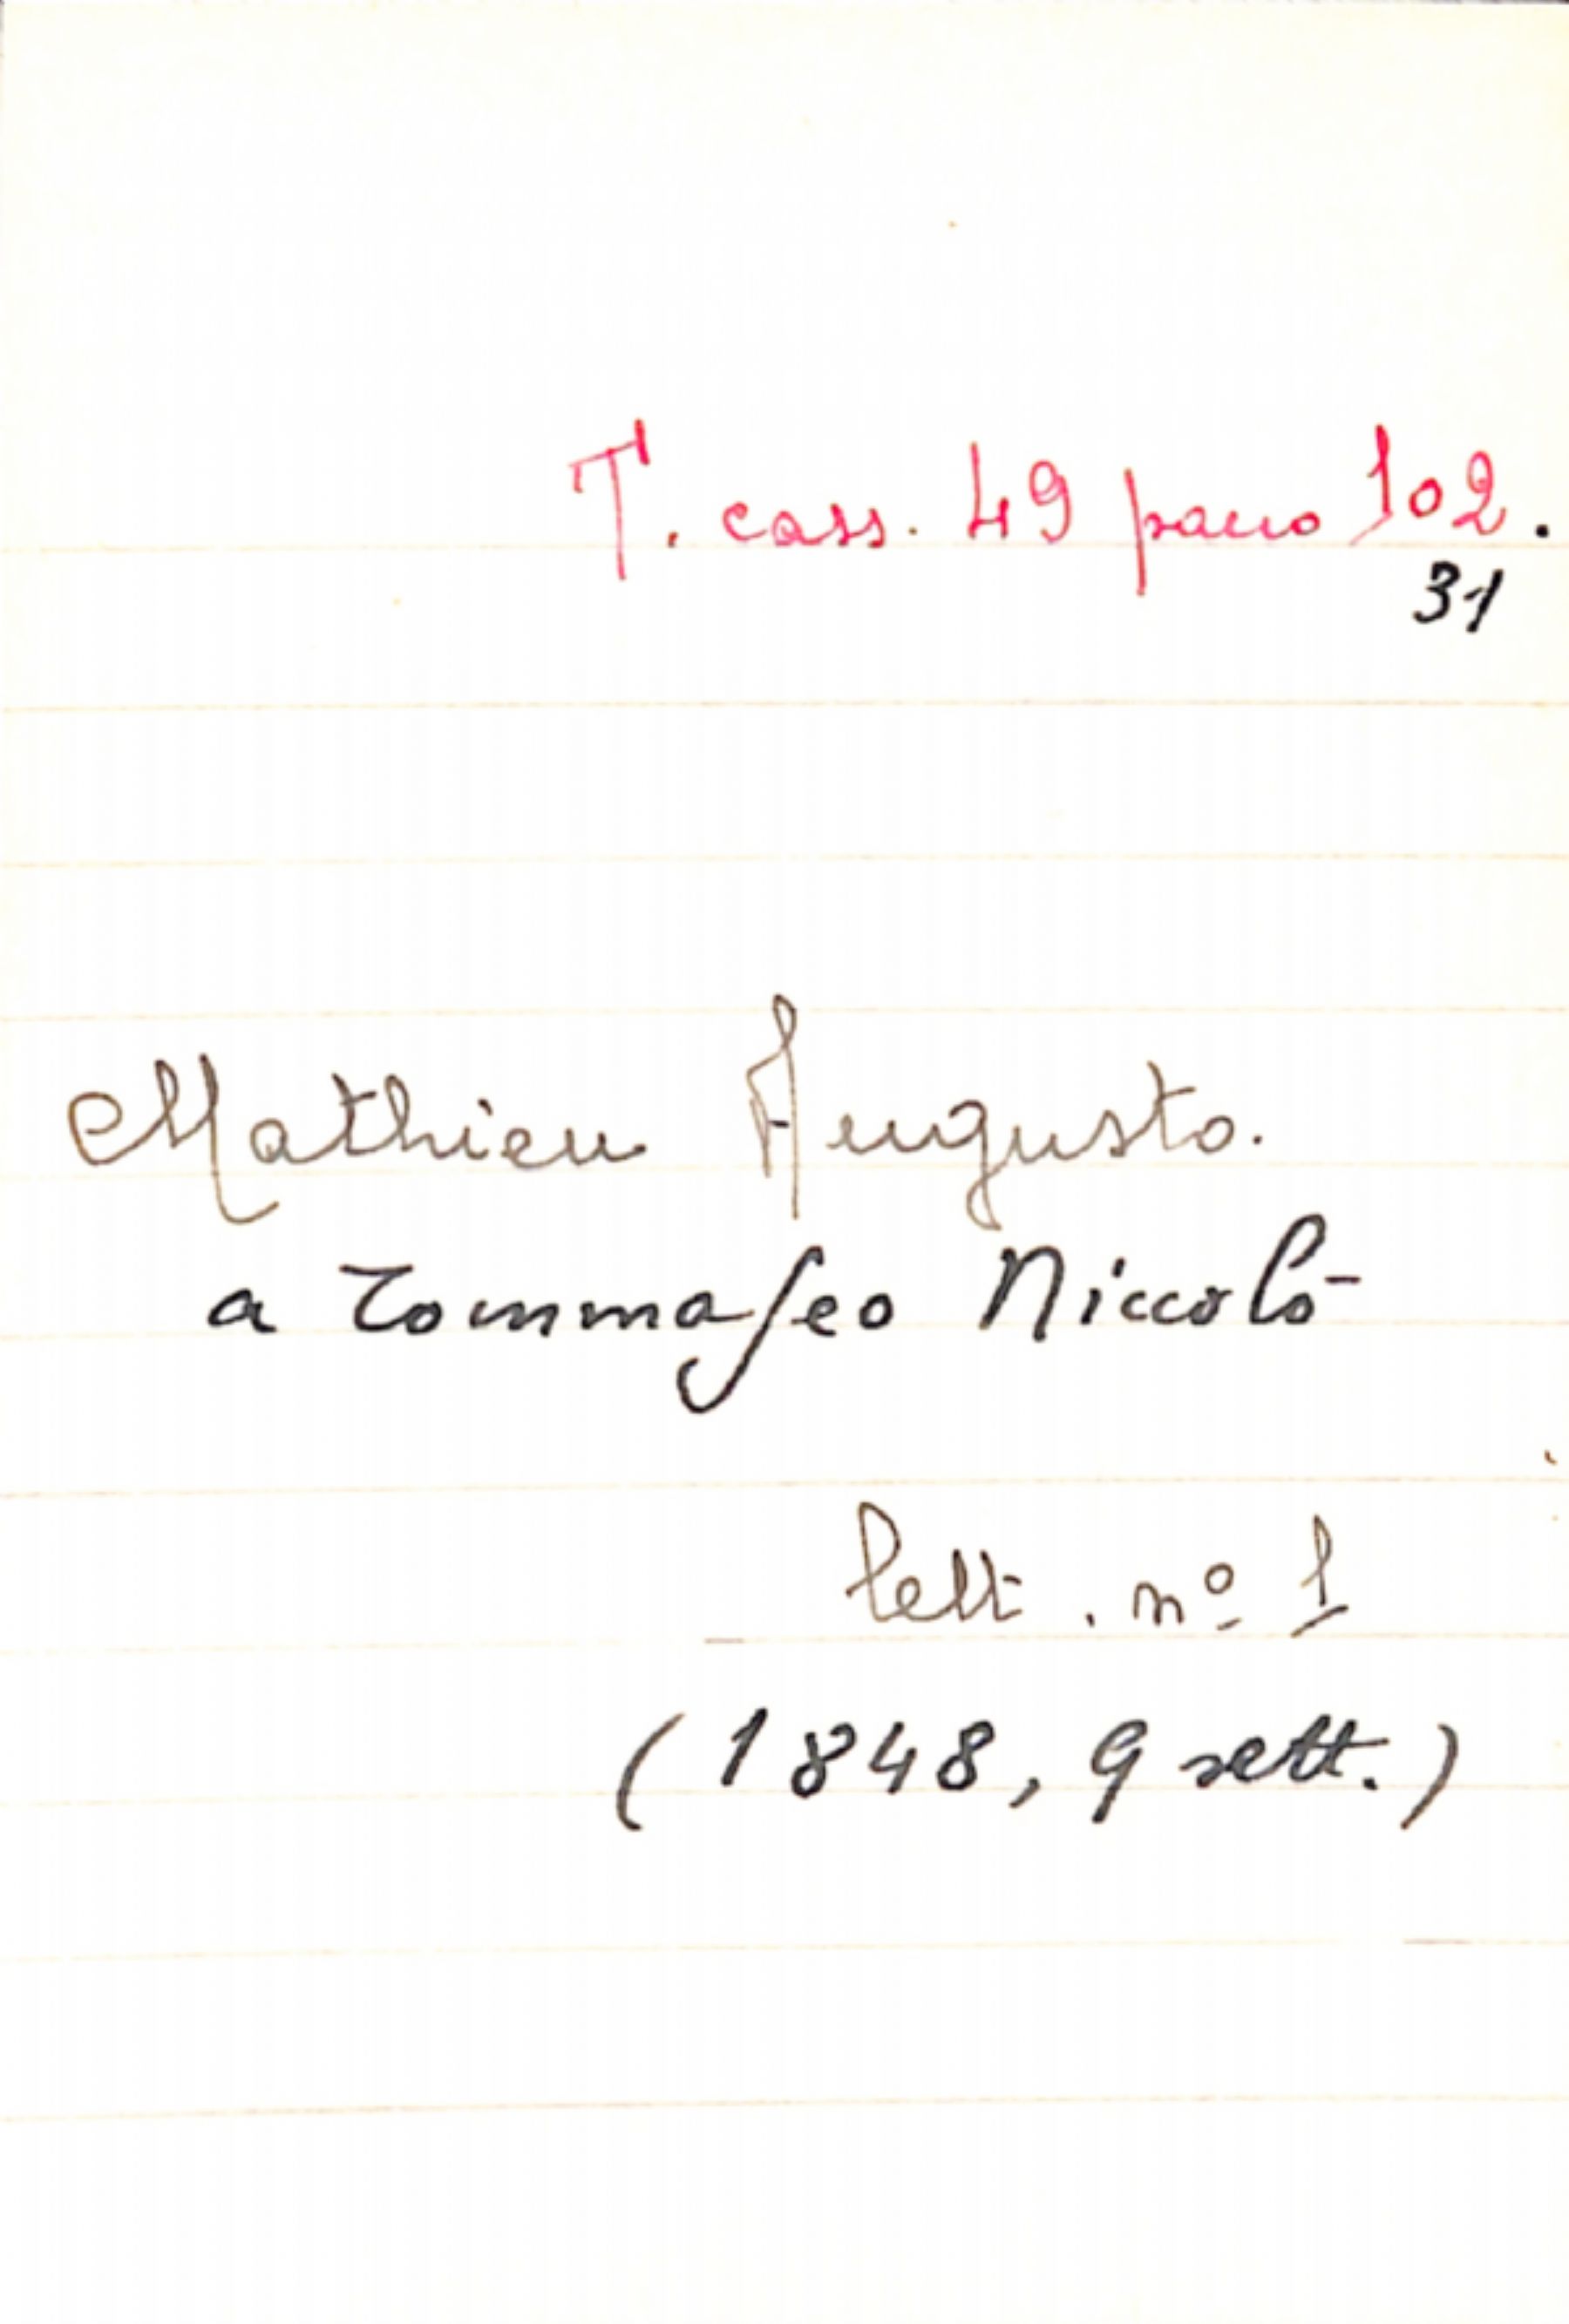 T. cass. 49 pacco 102.
31
Mathieu Augusto.
a Tommaseo Niccolò
lett. nº 1
(1848, 9 sett.)